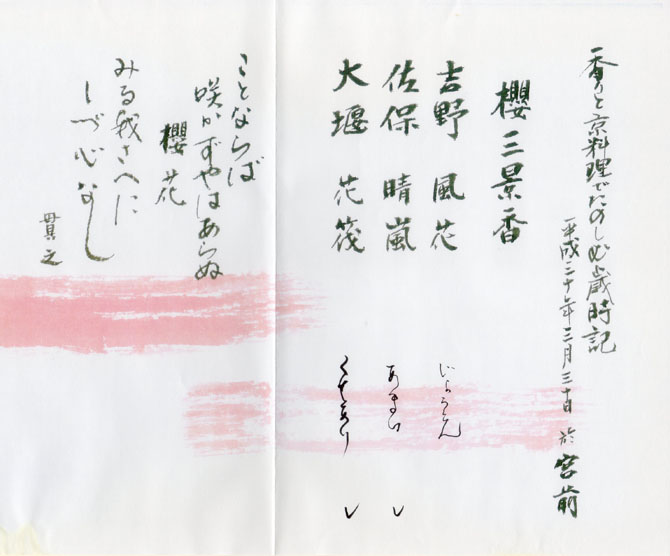 香りと京料理でたのしむ歳時記
平成二十年三月三十日 於 宮前
櫻三景香
吉野 風花
佐保 晴嵐
大堰 花筏
ことならば
咲かずやはあらぬ
櫻花
みる我さへに
しづ心なし
貫之